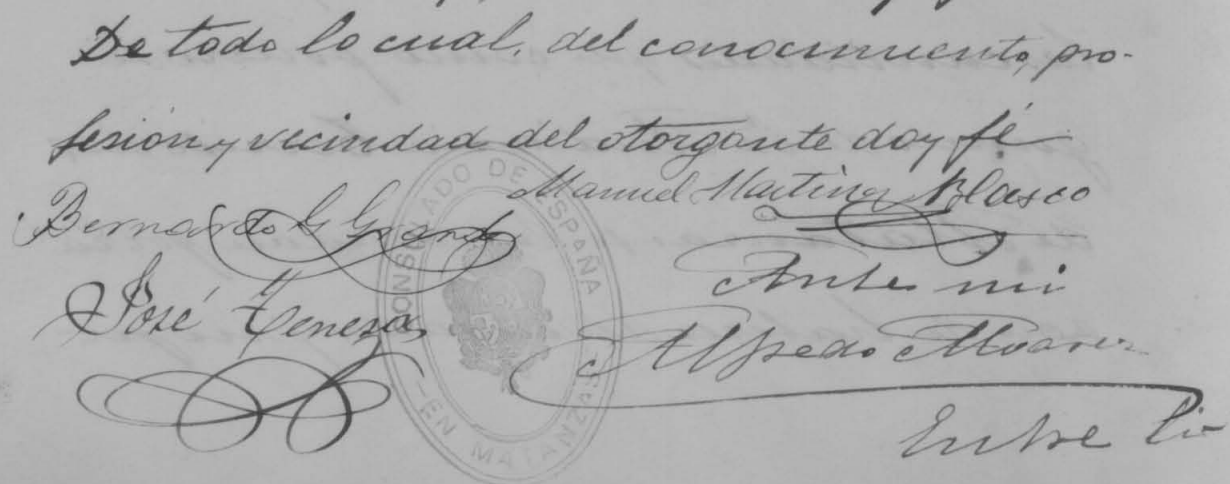 De todo lo cual, del conocimiento, pro-
fesion y vecindad del otorgante doy fé
Manuel Martinez Blasco
Bernardo G Grande
José Teneza
Ante mi
Alfredo Alvarez
Entre lin
CONSULADO DE ESPAÑA
EN MATANZAS